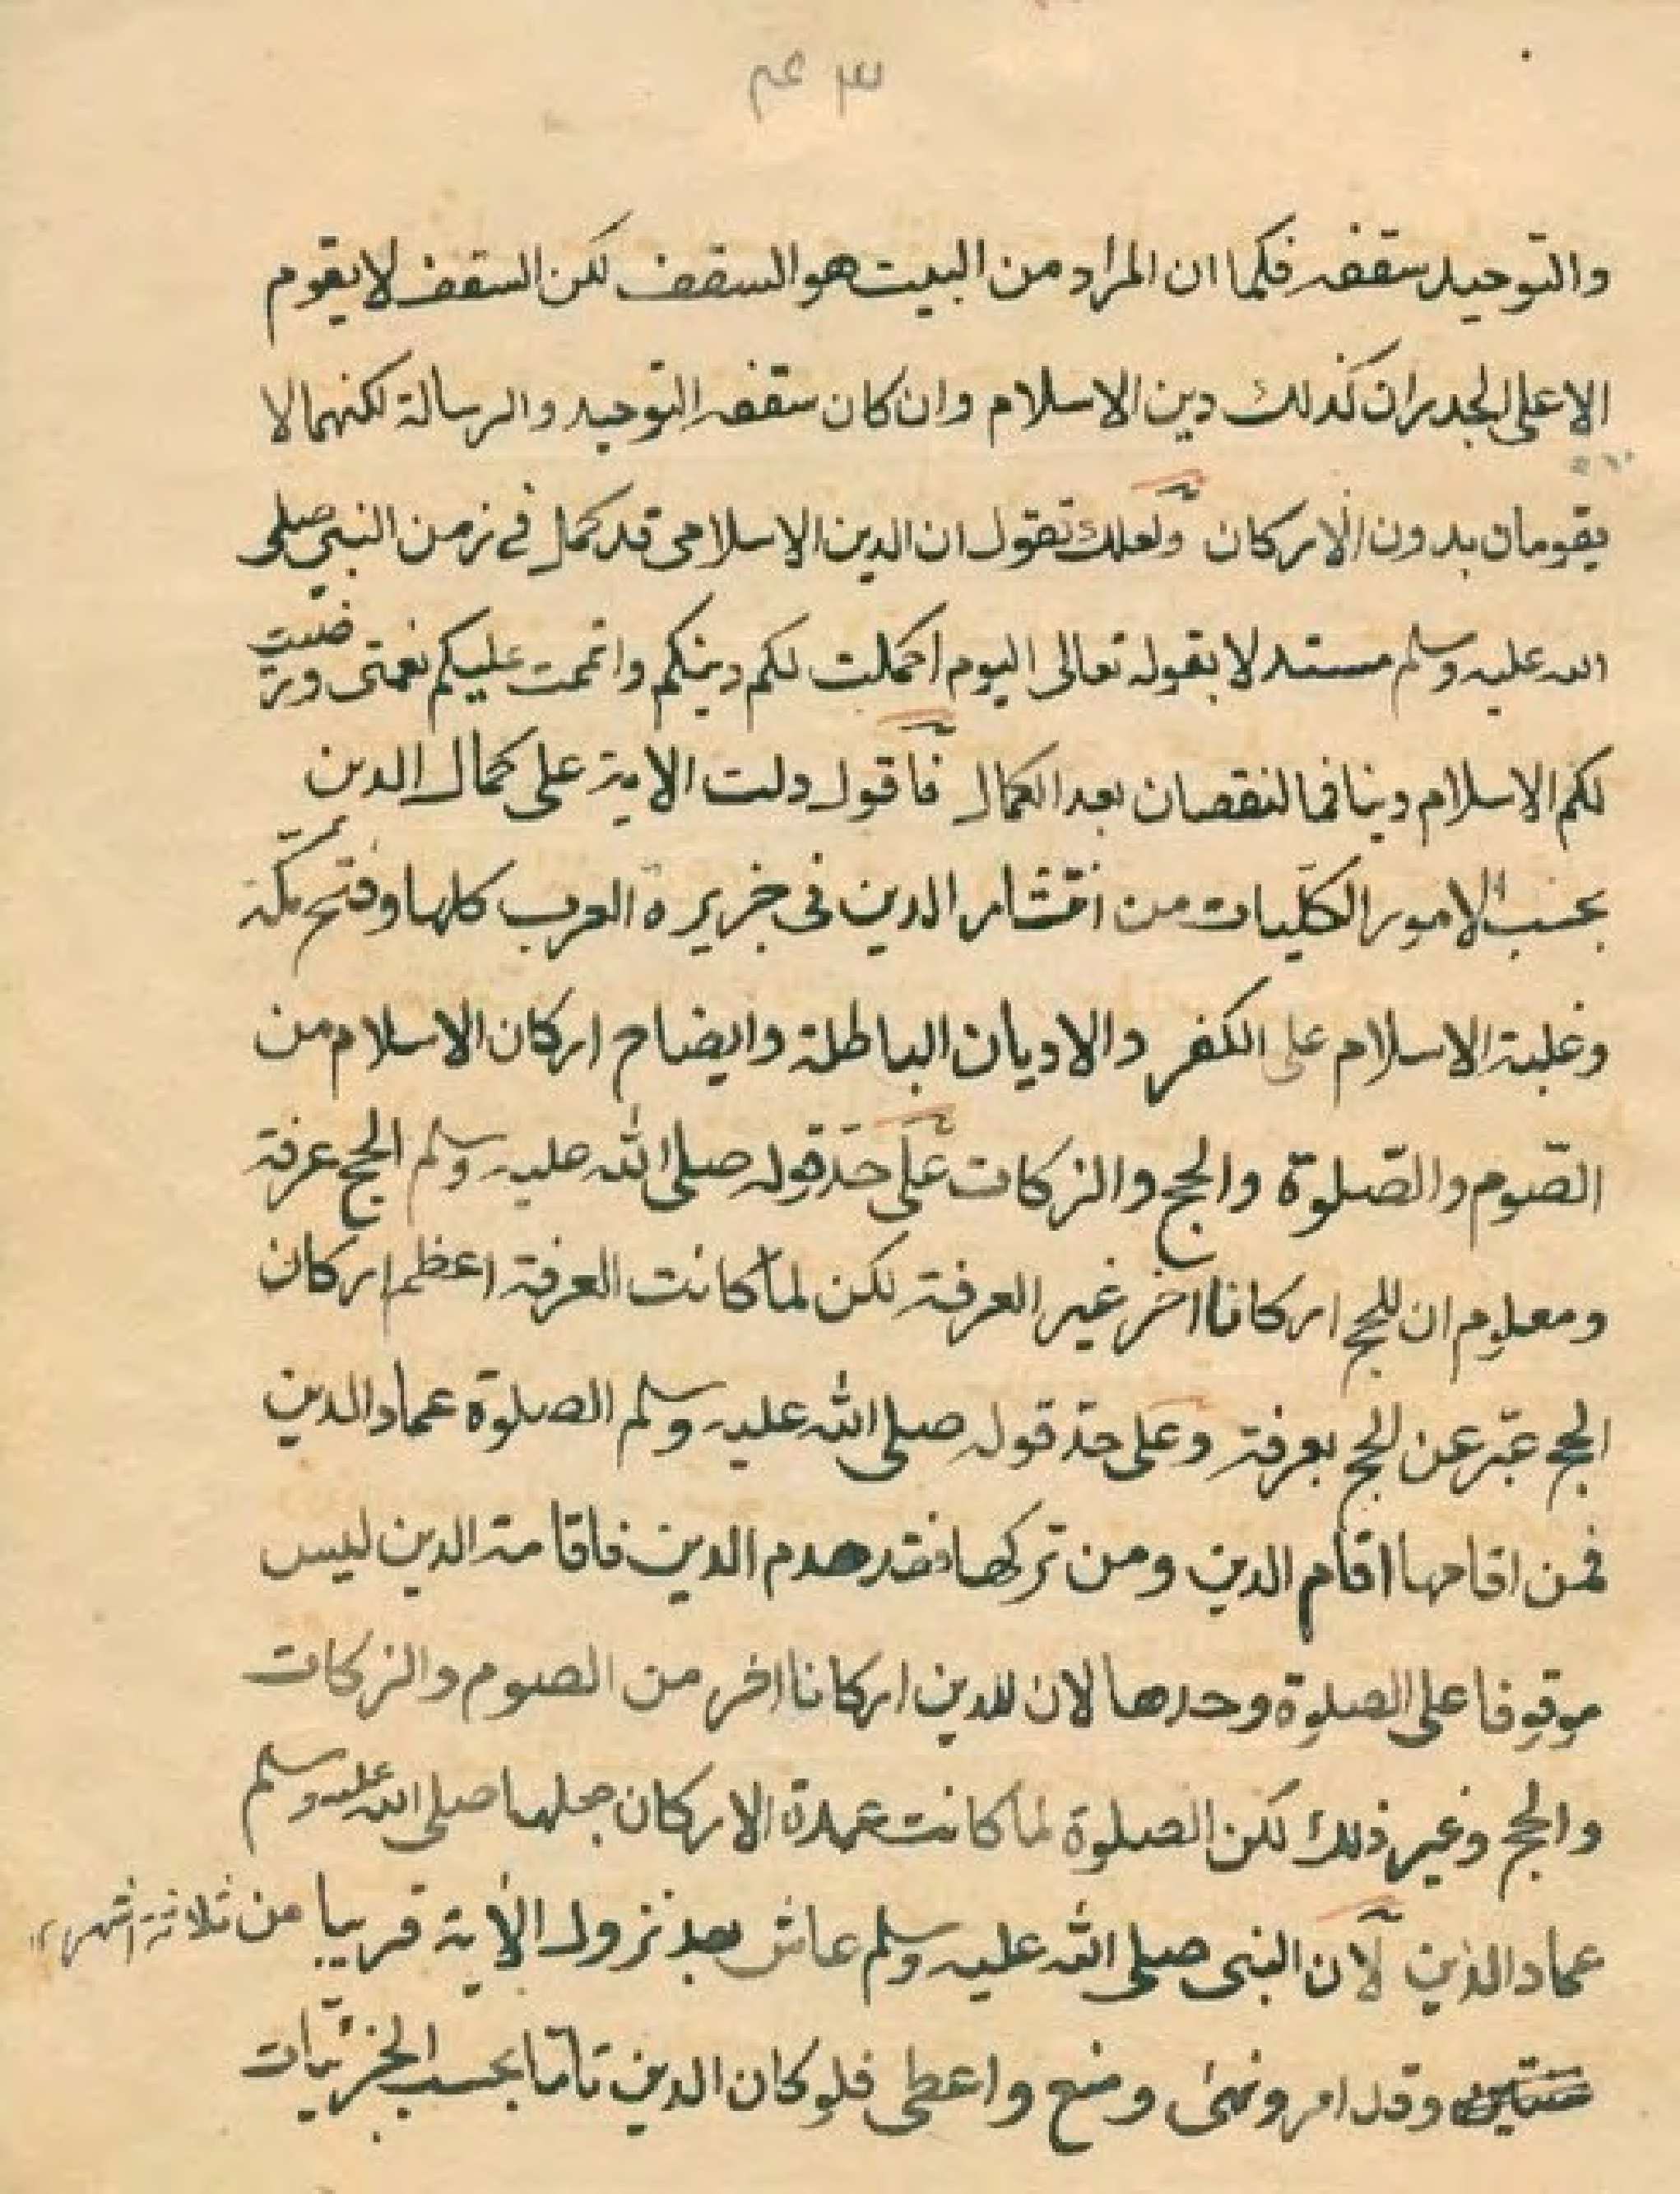 والتوحيد سقفه فكما ان المراد من البيت هو السقف لكن السقف لا يقوم
الا على الجدران كذلك دين الاسلام وان كان سقفه التوحيد والرسالة لكنهما لا
يقومان بدون الاركان ولعلك تقول ان الدين الاسلامى قد كمل في زمن النبي صلى
الله عليه وسلم مستدلا بقوله تعالى اليوم اكملت لكم دينكم واتممت عليكم نعمتى ورضيت
لكم الاسلام دينا فما لنقصان بعد الكمال فاقول دلت الاية على كمال الدين
بحسب الامور الكليات من انتشار الدين فى جزيرة العرب كلها وفتح مكة
وغلبة الاسلام على الكفر والاديان الباطلة وايضاح اركان الاسلام من
الصّوم والصّلوة والحج والزكات على حدّ قوله صلى الله عليه وسلم الحج عرفة
ومعلوم ان للحج اركانا اخر غير العرفة لكن لما كانت العرفة اعظم اركان
الحج عبّر عن الحج بعرفة وعلى حدّ قوله صلى الله عليه وسلم الصلوة عماد الدين
فمن اقامها اقام الدين ومن تركها فقد هدم الدين فاقامة الدين ليس
موقوفا على الصلوة وحدها لان للدين اركانا اخر من الصوم والزكات
والحج وغير ذلك لكن الصلوة لما كانت عمدة الاركان جعلها صلى الله عليه وسلم
عماد الدين لان النبى صلى الله عليه وسلم عاش بعد نزول الأية قريبا من ثلاثة اشهر ١٢
وقد امر ونهى ومنع واعطى فلو كان الدين تامّا بحسب الجزئيات